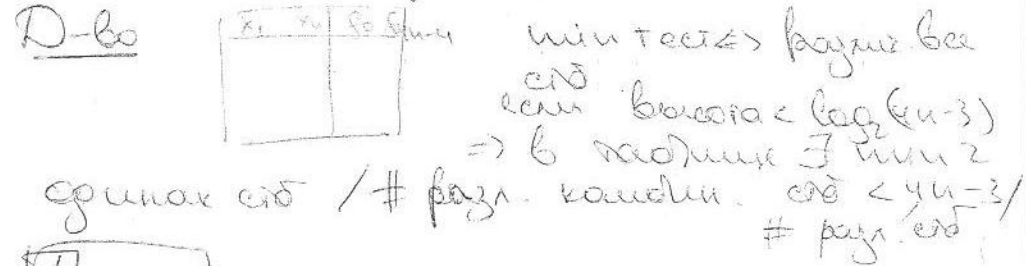 Д-во x₁ xₙ f₀ f₄ₙ₋₄ min тест <=> различ. все
стб
если высота < log₂(4n-3)
=> в таблице ∃ min 2
одинак стб / # разл. комбин. стб < 4n-3/
# разл. стб